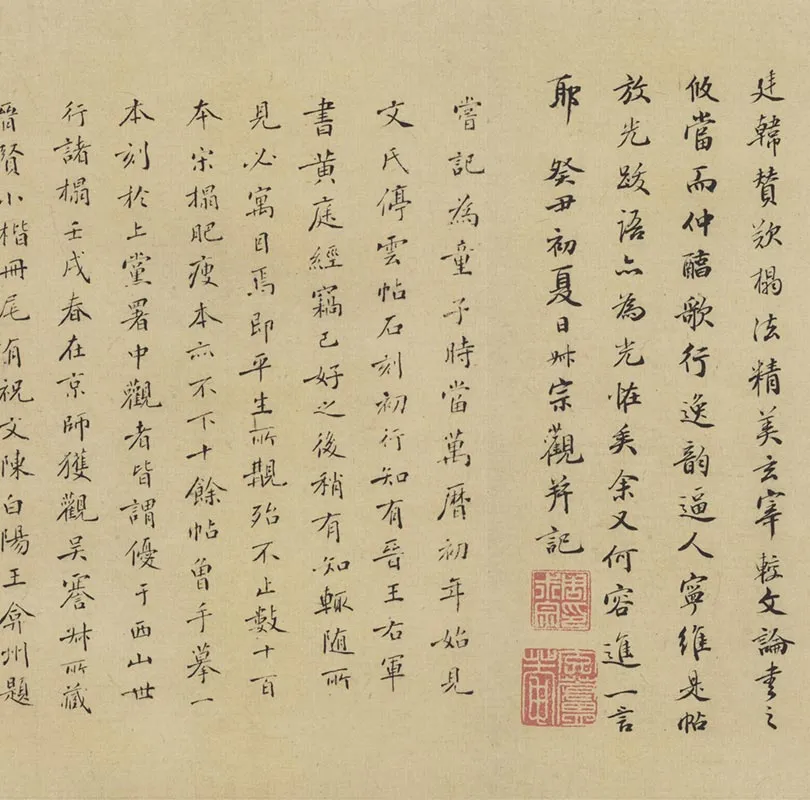 廷韓贊歎榻法精美玄宰較文論書之
攸當而仲醕歌行逸韵逼人寧維是帖
放光跋語亦為光怪矣余又何容進一言
耶 癸丑初夏日 宗觀并記
嘗記為童子時當萬曆初年始見
文氏停雲帖石刻初行知有晉王右軍
書黃庭經竊已好之後稍有知輒随所
見必寓目焉即平生所覩殆不止數十百
本宋榻肥瘦本亦不下十餘帖曾手摹一
本刻於上黨署中觀者皆謂優于西山世
行諸榻壬戌春在京師獲觀吳 所藏
晉賢小楷冊尾有祝文陳白陽王弇州題